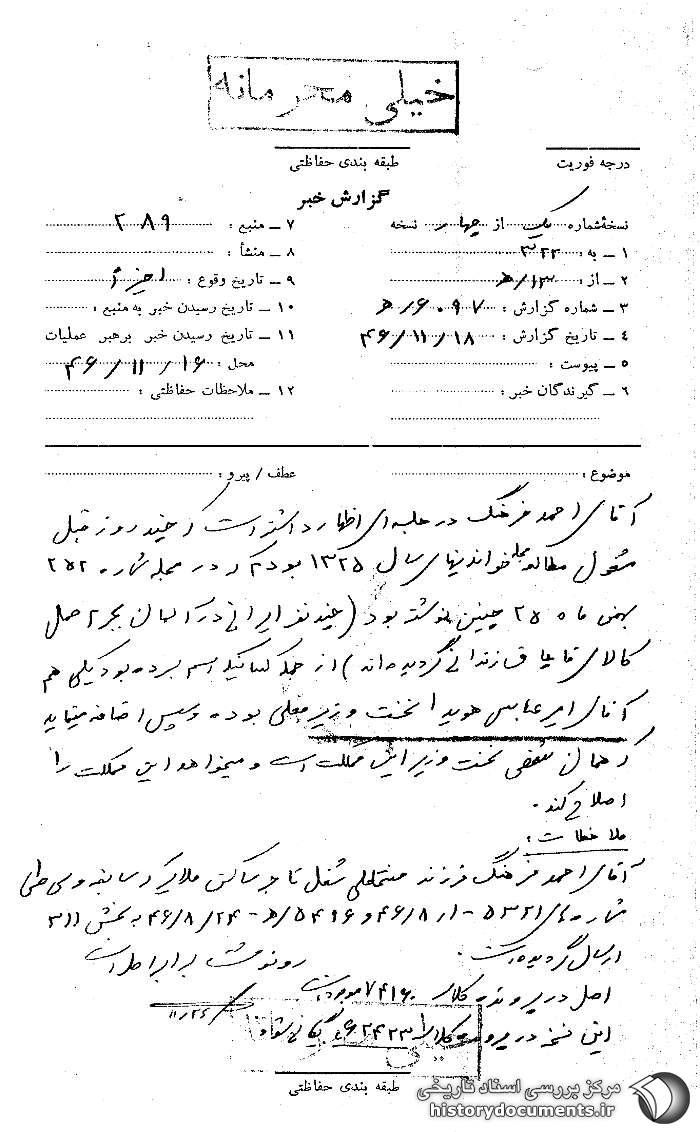 خیلی محرمانه
درجه فوریت
طبقه بندی حفاظتی
گزارش خبر
نسخهٔ شماره یک از چهار نسخه
۱ ــ به : ۳۲۲
۲ ــ از : ۱۳/ه
۳ ــ شماره گزارش : ۶۰۹۷/ه
۴ ــ تاریخ گزارش : ۴۶/۱۱/۱۸
۵ ــ پیوست :
۶ ــ گیرندگان خبر :
۷ ــ منبع : ۲۸۹
۸ ــ منشأ :
۹ ــ تاریخ وقوع : اخیراً
۱۰ ــ تاریخ رسیدن خبر به منبع :
۱۱ ــ تاریخ رسیدن خبر برهبر عملیات
محل : ۴۶/۱۱/۱۶
۱۲ ــ ملاحظات حفاظتی :
موضوع :
عطف / پیرو :
آقای احمد فرهنگ در جلسه‌ای اظهار داشته است که چند روز قبل
مشغول مطالعه مجله خواندنیهای سال ۱۳۲۵ بودم که در مجله شماره ۲۵۲
بهمن ماه ۲۵ چنین نوشته بود (چند نفر ایرانی در آلمان بجرم حمل
کالای قاچاق زندانی گردیده‌اند) از جمله کسانیکه اسم برده بود یکی هم
آقای امیرعباس هویدا نخست وزیر فعلی بوده و سپس اضافه مینماید
که همان شخص نخست وزیر این مملکت است و میخواهد این مملکت را
اصلاح کند.
ملاحظات :
آقای احمد فرهنگ فرزند شغل تاجر ساکن ملایر که سابقه وی طی
شماره‌های ۵۳۲۱ - ۴۶/۸/ و ۵۴۹۶/ه - ۴۶/۸/۲۴ به بخش ۳۱۱
ارسال گردیده است.
رونوشت برابر اصل است
اصل در پرونده کلاسه ۷۴۱۶۰ موجود است
این نسخه در پرونده کلاسه ۶۲۴۲۳ بایگانی شود
۱۱/۲۶
طبقه بندی حفاظتی
مرکز بررسی اسناد تاریخی
historydocuments.ir